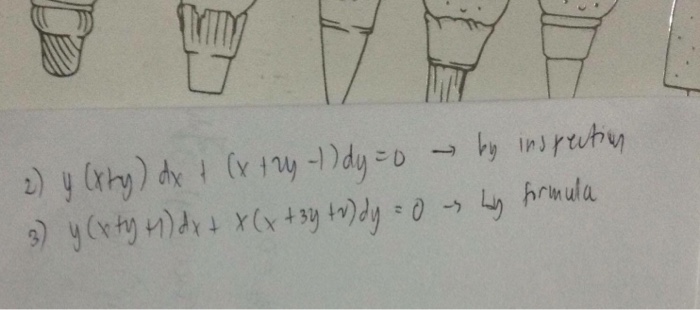 2) y (x+y) dx + (x + 2y - 1) dy = 0 → by inspection
3) y (x+y+1) dx + x (x + 3y + 2) dy = 0 → by formula